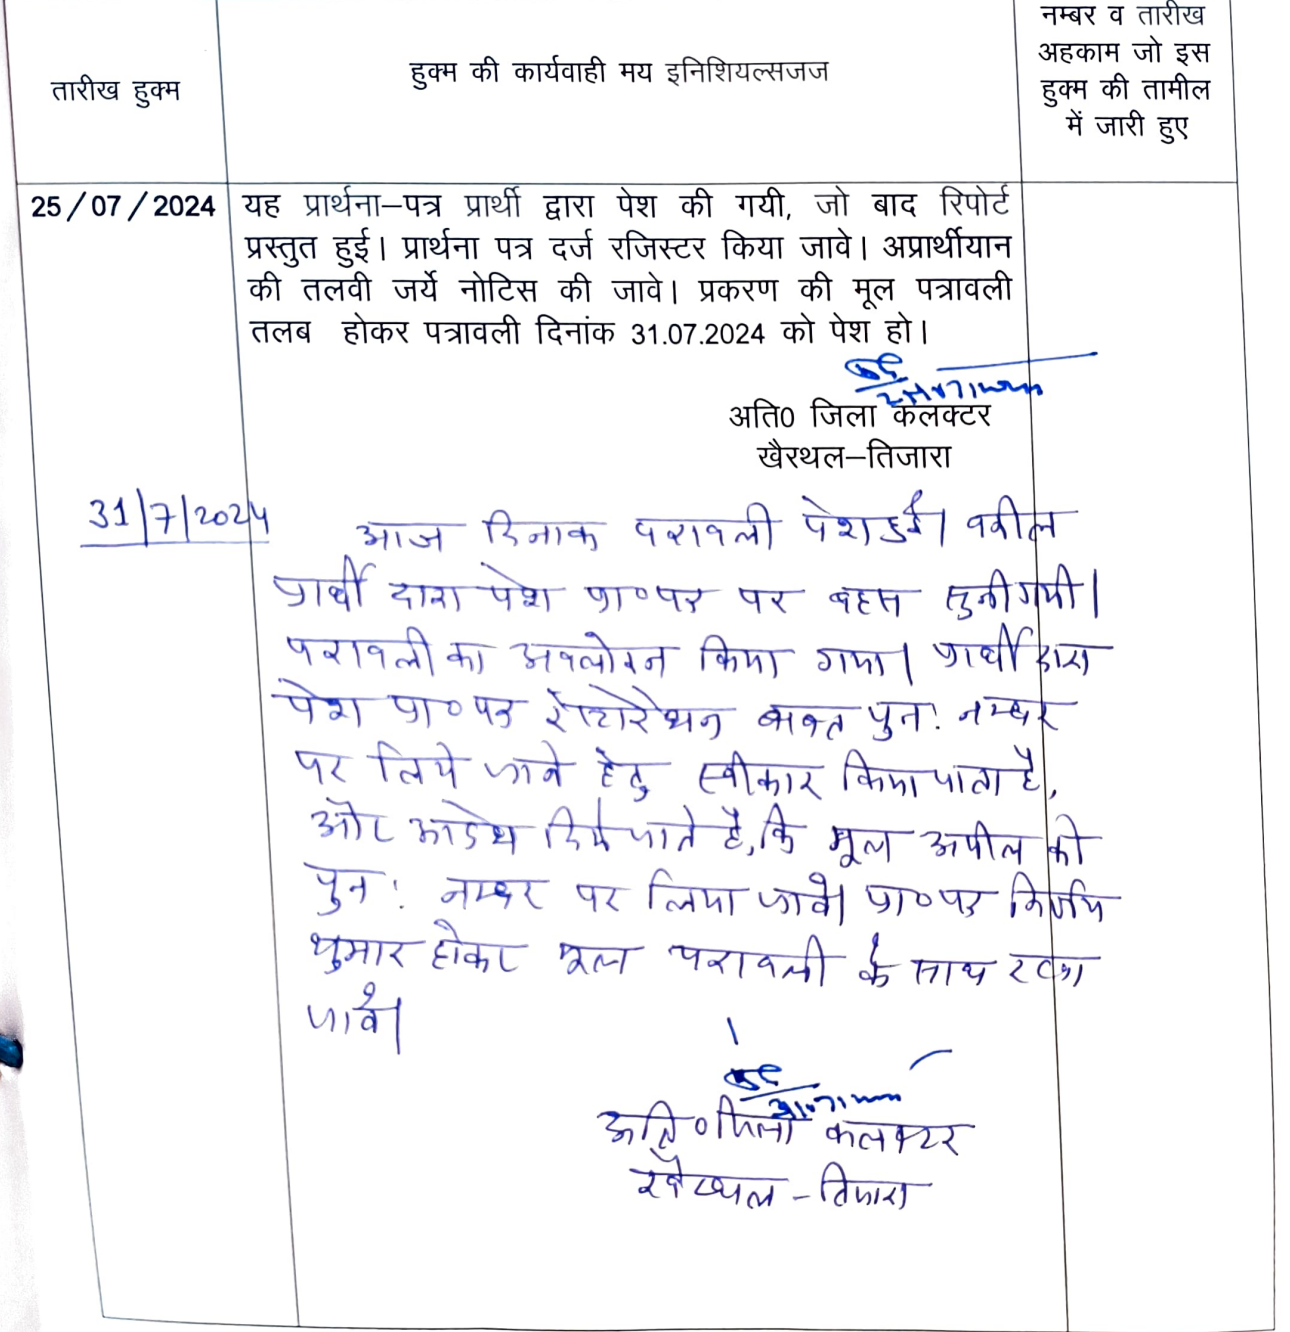 तारीख हुक्म
हुक्म की कार्यवाही मय इनिशियल्सजज
नम्बर व तारीख
अहकाम जो इस
हुक्म की तामील
में जारी हुए
25/07/2024
यह प्रार्थना–पत्र प्रार्थी द्वारा पेश की गयी, जो बाद रिपोर्ट
प्रस्तुत हुई। प्रार्थना पत्र दर्ज रजिस्टर किया जावे। अप्रार्थीयान
की तलवी जर्ये नोटिस की जावे। प्रकरण की मूल पत्रावली
तलब होकर पत्रावली दिनांक 31.07.2024 को पेश हो।
अति0 जिला कलक्टर
खैरथल–तिजारा
31/7/2024
आज दिनांक पत्रावली पेश हुई। वकील
प्रार्थी द्वारा पेश प्रा०पत्र पर बहस सुनी गयी।
पत्रावली का अवलोकन किया गया। प्रार्थी द्वारा
पेश प्रा०पत्र रेस्टोरेशन बाबत पुन: नम्बर
पर लिये जाने हेतु स्वीकार किया जाता है,
और आदेश दिये जाते है, कि मूल अपील को
पुन: नम्बर पर लिया जावे। प्रा०पत्र निर्णय
शुमार होकर मूल पत्रावली के साथ रखा
जावे।
अति० जिला कलक्टर
खैरथल – तिजारा